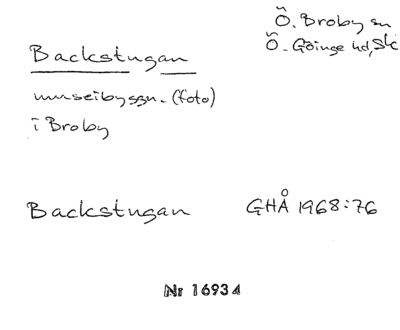 Ö. Broby sn
Ö. Göinge hd, Sk
Backstugan
museibyggn. (foto)
i Broby
Backstugan GHÅ 1968:76
Nr 16934